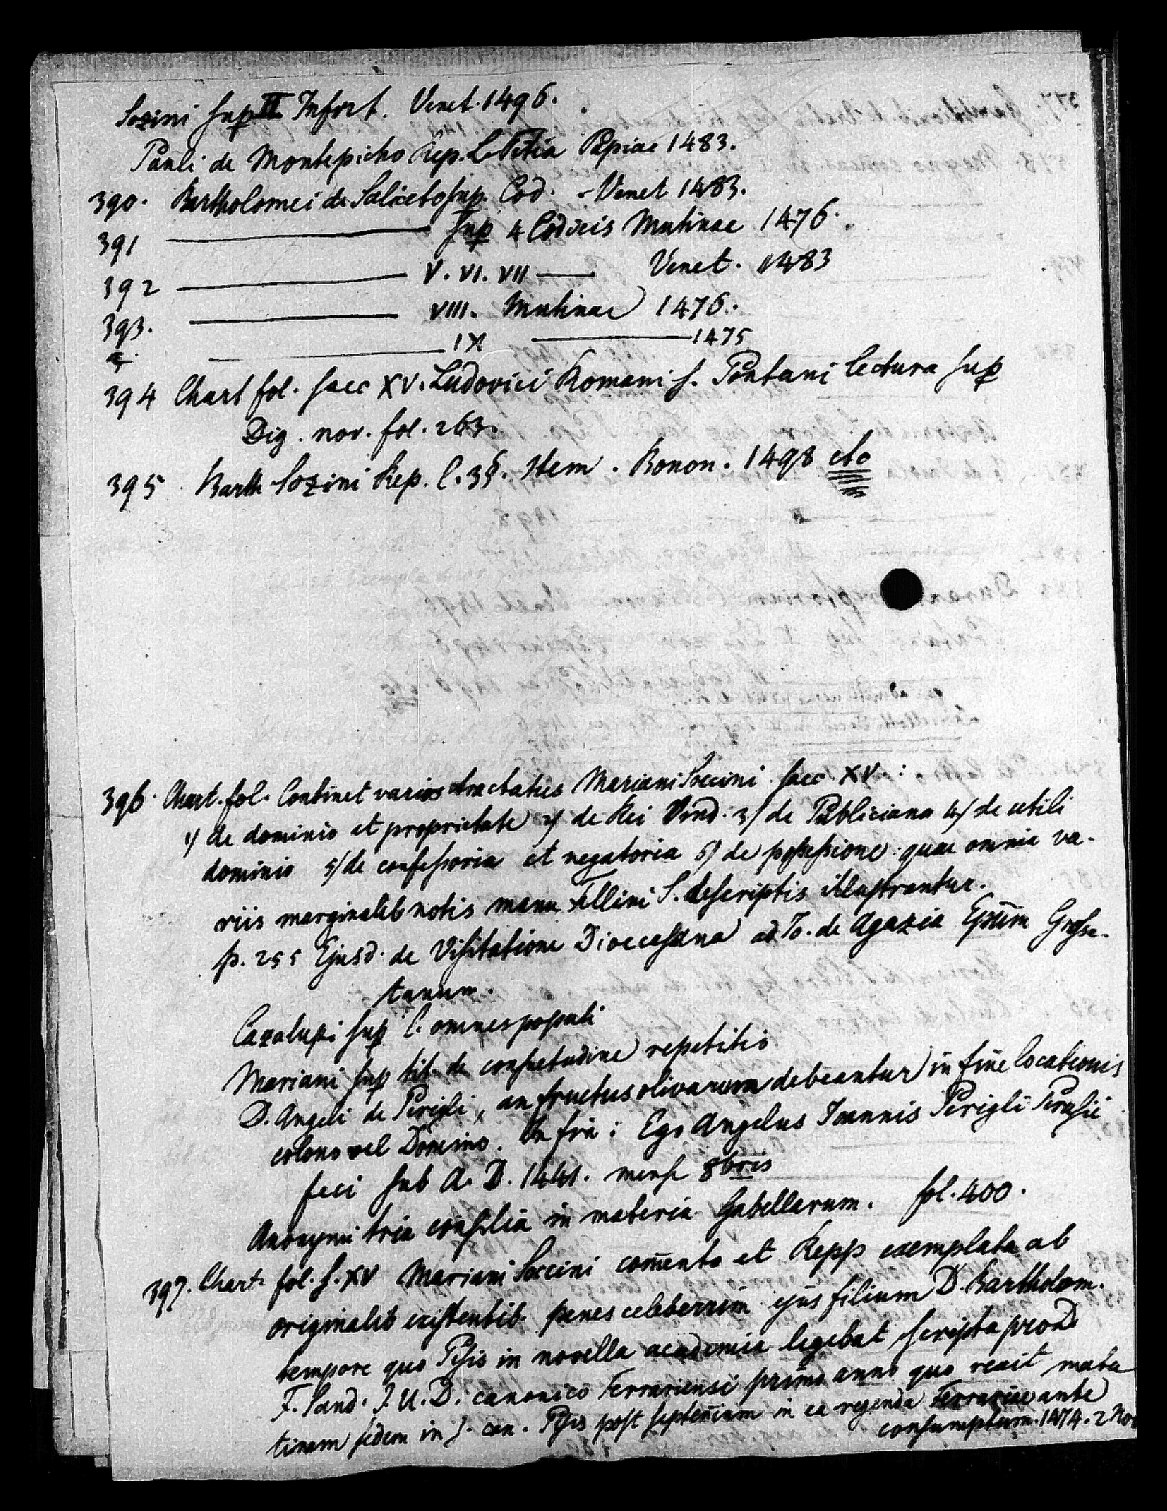 Sozini sup II Infort. Venet. 1496.
Pauli de Montepicho Rep. L. Titia Papiae 1483.
390. Bartholomei de Saliceto sup. Cod. - Venet 1483.
391 ——— sup 4 Codicis Mutinae 1476.
392 ——— V. VI. VII —— Venet. 1483
393. ——— VIII. Mutinae 1476.
——— IX ——— 1475
394 Chart fol. saec XV. Ludovici Romani s. Pontani lectura sup
Dig. nov. fol. 263.
395 Barth Sozini Rep. l. 3 §. Item. Bonon. 1498 etc
396. Chart. fol. Continet varios tractatus Mariani Soccini saec XV:
1/ de dominio et proprietate 2/ de Rei Vind. 3/ de Publiciana 4/ de utili
dominio 5/ de confessoria et negatoria 6/ de possessione: quae omnia va-
riis marginalib notis manu Fellini S. descriptis illustrantur.
p. 255 Ejusd. de Visitatione Dioecesana ad Jo. de Agazia Epūm Grosse-
tanum.
Cazalupi sup l. omnes populi
Mariani sup tit. de consuetudine repetitio
D. Angeli de Perigli, an fructus olivarum debeantur in fine locationis
colono vel Domino. In fin: Ego Angelus Joannis Perigli Perusii
feci sub A. D. 1441. mense 8bris
Anonymi tria consilia in materia Gabellarum. fol. 400.
397. Chart. fol. s. XV Mariani Soccini com̄ento et Repp exemplata ab
originalib existentib penes celeberrim ejus filium D. Bartholom.
tempore quo Pisis in novella academia legebat scripta pro D
F. Sand. J. U. D. canonico Ferrariensi primo anno quo recit matu
tinam sedem in J. can. Pisis post septen̄ium in ea regenda Ferrariae ante
consumptum. 1474. 2 Nov